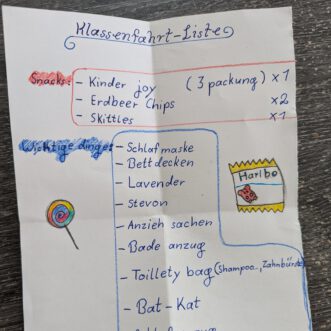 Klassenfahrt-Liste
Snacks: - Kinder joy (3 packung) x1
- Erdbeer Chips x2
- Skittles x1
Wichtige dinge: - Schlafmaske
- Bettdecken
- Lavender
- Stevon
- Anzieh sachen
- Bade anzug
- Toillety bag (Shampoo.., Zahnbürste
- Bat-Kat
Haribo